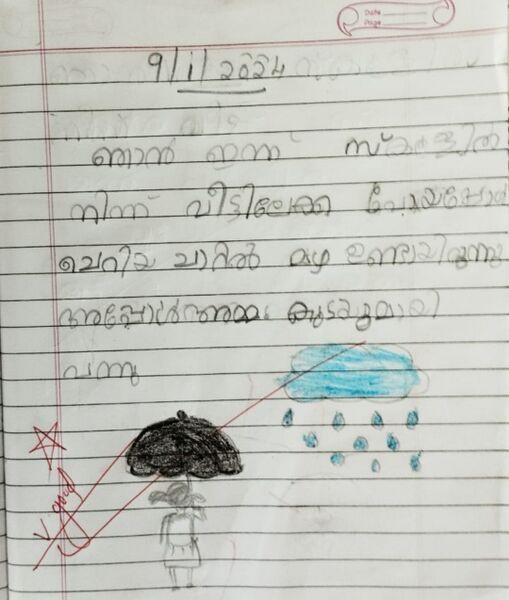 Date
Page
9/1/2024
ഞാൻ ഇന്ന് സ്കൂളിൽ
നിന്ന് വീട്ടിലേക്ക പോയപ്പോൾ
ചെറിയ ചാറൽ മഴ ഉണ്ടായിരുന്നു
അപ്പോൾ അമ്മ കുടയുമായി
വന്നു
V. good